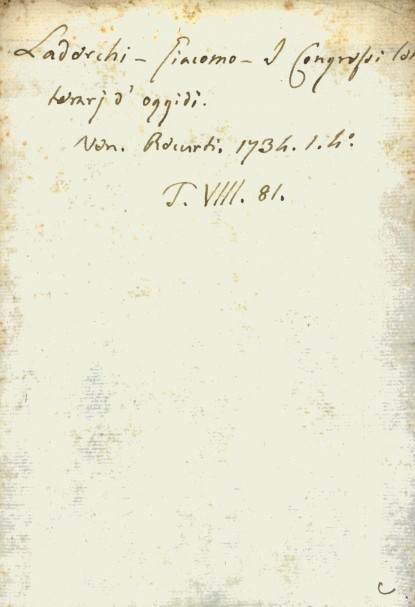 Laderchi - Giacomo - I Congressi let
terarj d' oggidi.
Ven. Recurti. 1734. 1. 4°.
T. VIII. 81.